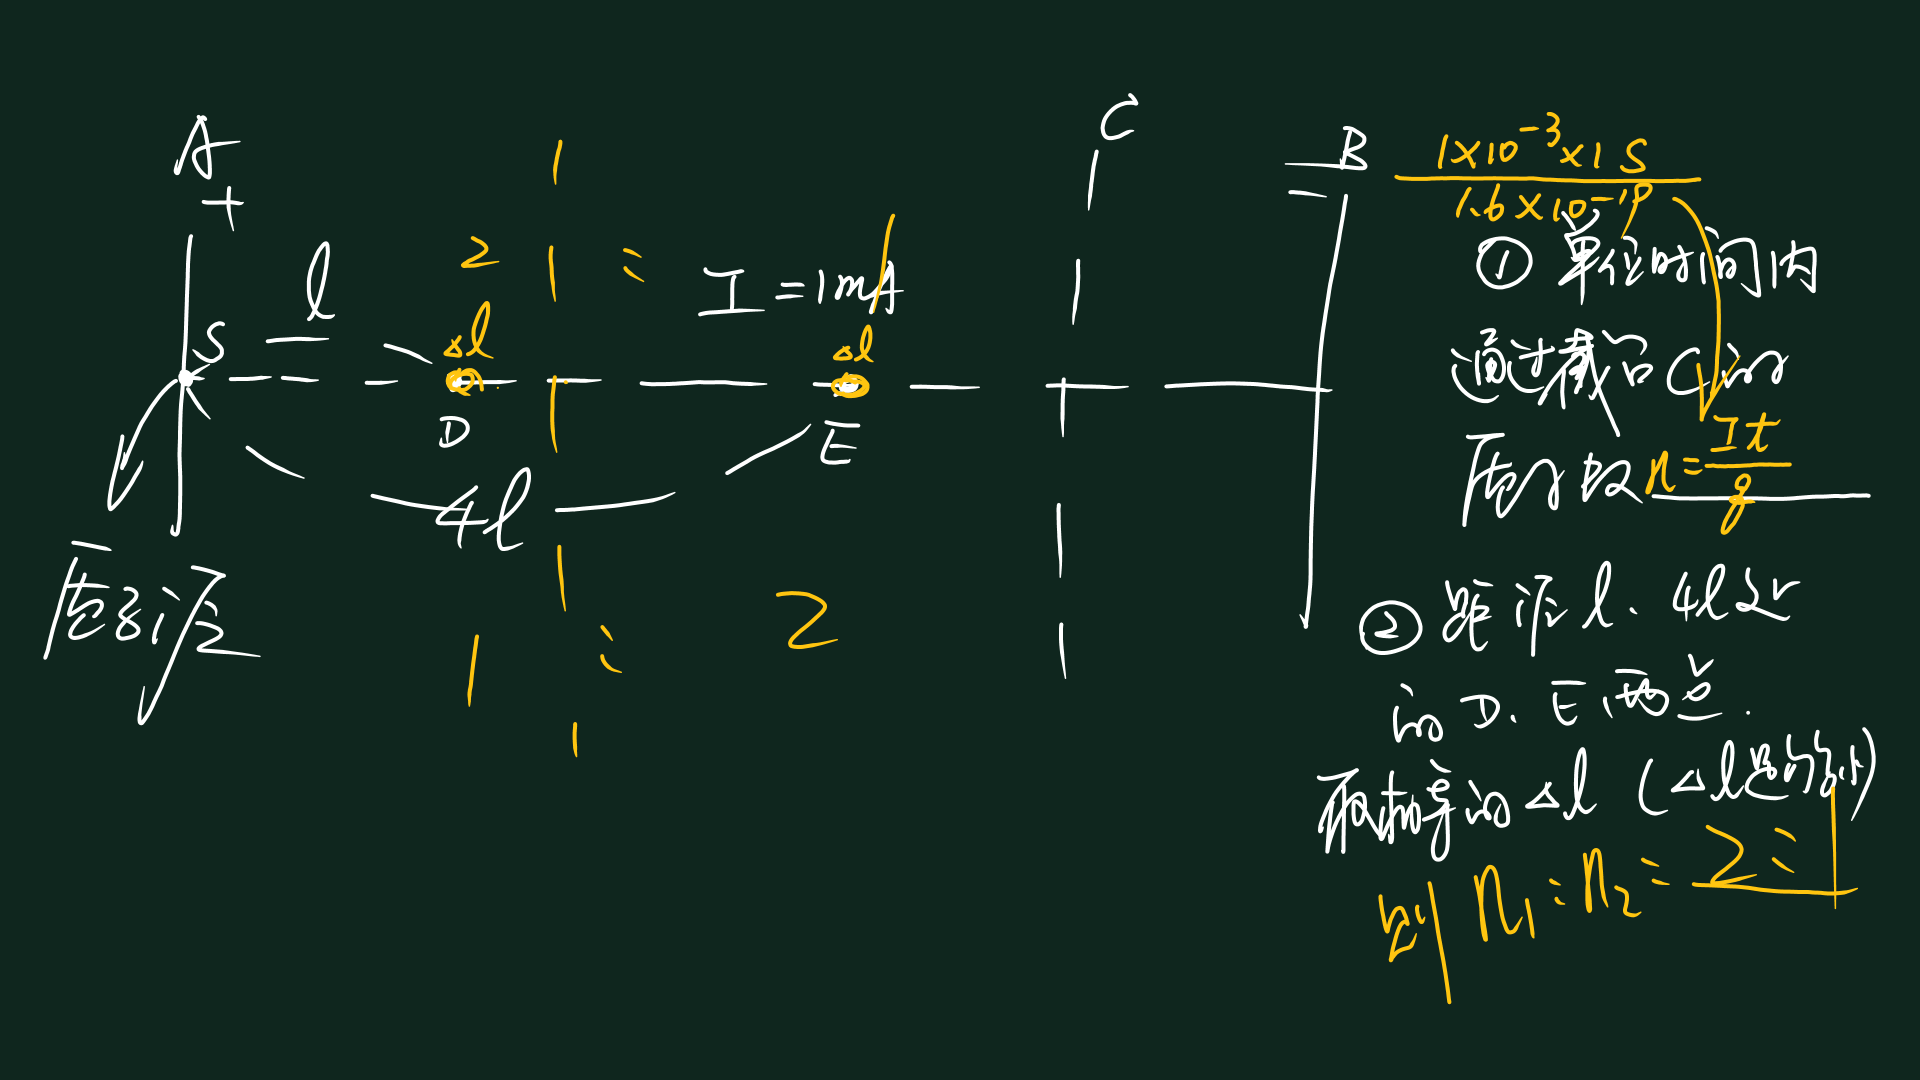 A
+
S
l
2
1
:
Δl
D
I=1mA
Δl
E
4l
质子源
1 : 2
C
B
1×10⁻³×1 S
1.6×10⁻¹⁹
① 单位时间内
通过截面C的
质子数 n = It/q
② 距源l、4l处
的D、E两点.
取相等的Δl (Δl足够小)
则 n₁:n₂= 2:1